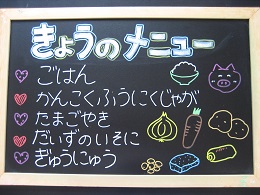 きょうのメニュー
ごはん
かんこくふうにくじゃが
たまごやき
だいずのいそに
ぎゅうにゅう